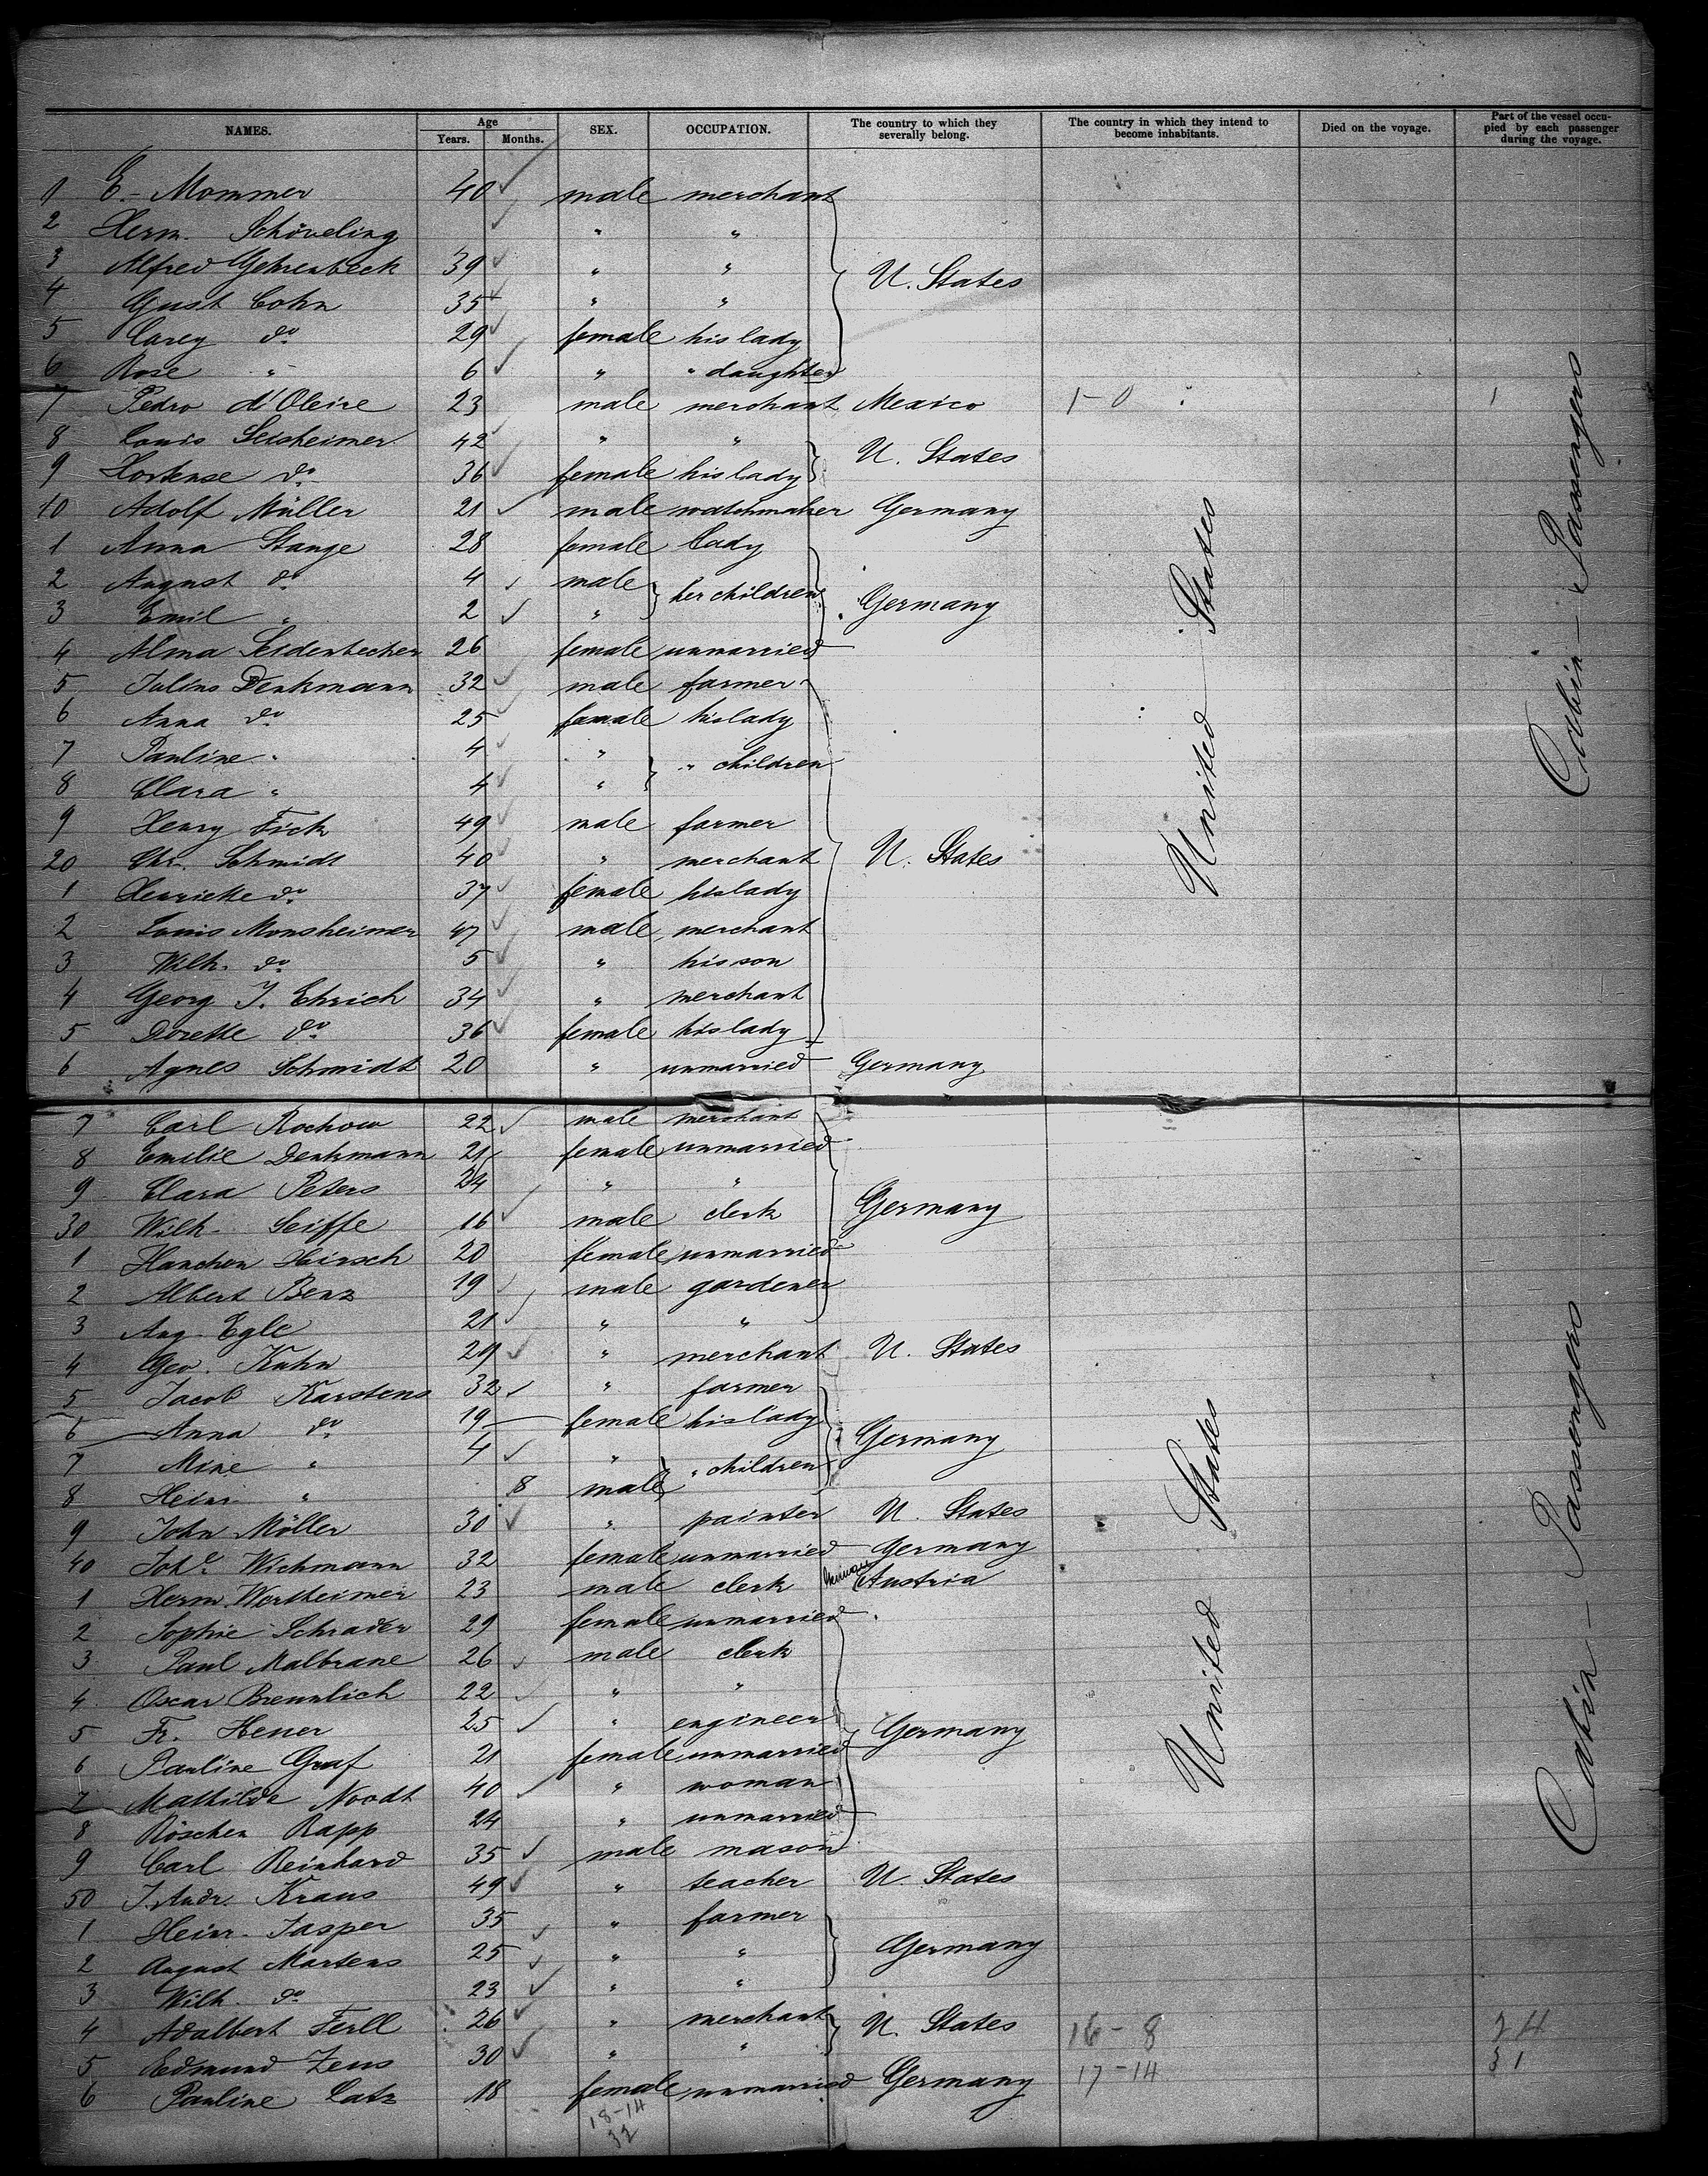 NAMES. Age Years. Months. SEX. OCCUPATION. The country to which they severally belong. The country in which they intend to become inhabitants. Died on the voyage. Part of the vessel occupied by each passenger during the voyage.
1 E. Mommer 40 male merchant
2 Herm. Schöveling " "
3 Alfred Gehrenbeck 39 " " U. States
4 Gust Cohn 35 " "
5 Carey do 29 female his lady
6 Rose " 6 " " daughter
7 Pedro d'Oleire 23 male merchant Mexico 1-0 1
8 Louis Seisheimer 42 " " U. States
9 Hortense do 36 female his lady
10 Adolf Müller 21 male watchmaker Germany
1 Anna Stange 28 female lady
2 August do 4 male her children Germany
3 Emil " 2 "
4 Alma Seidenbecher 26 female unmarried
5 Julius Denkmann 32 male farmer
6 Anna do 25 female his lady
7 Pauline " 4 " " children
8 Clara " 4 "
9 Henry Fick 49 male farmer
20 Chr. Schmidt 40 " merchant U. States
1 Henriette do 37 female his lady
2 Louis Monsheimer 47 male merchant
3 Wilh. do 5 " his son
4 Georg J. Ehrich 34 " merchant
5 Dorette do 36 female his lady
6 Agnes Schmidt 20 " unmarried Germany
United States
Cabin - Passengers
7 Carl Rochow 22 male merchant
8 Emilie Denkmann 21 female unmarried
9 Clara Peters 24 " "
30 Wilh. Seiffe 16 male clerk Germany
1 Hanchen Hirsch 20 female unmarried
2 Albert Benz 19 male gardener
3 Aug. Egle 21 " "
4 Geo. Kuhn 29 " merchant U. States
5 Jacob Karstens 32 " farmer
6 Anna do 19 female his lady Germany
7 Mine " 4 " " children
8 Heinr. " 8 male
9 John Möller 30 " painter U. States
40 Johe Wichmann 32 female unmarried Germany
1 Herm. Wertheimer 23 male clerk Austria
2 Sophie Schrader 29 female unmarried
3 Paul Malbrane 26 male clerk
4 Oscar Brennlich 22 " "
5 Fr. Heuer 25 " engineer Germany
6 Pauline Graf 21 female unmarried
7 Mathilde Noodt 40 " woman
8 Röschen Rapp 24 " unmarried
9 Carl Reinhard 35 male mason
50 J. Andr. Kraus 49 " teacher U. States
1 Heinr. Jasper 35 " farmer
2 August Martens 25 " " Germany
3 Wilh. do 23 " "
4 Adalbert Ferll 26 " merchant U. States 16-8 24
5 Edmund Zeus 30 " " 17-14 31
6 Pauline Catz 18 female unmarried Germany
18-14
32
United States
Cabin - Passengers